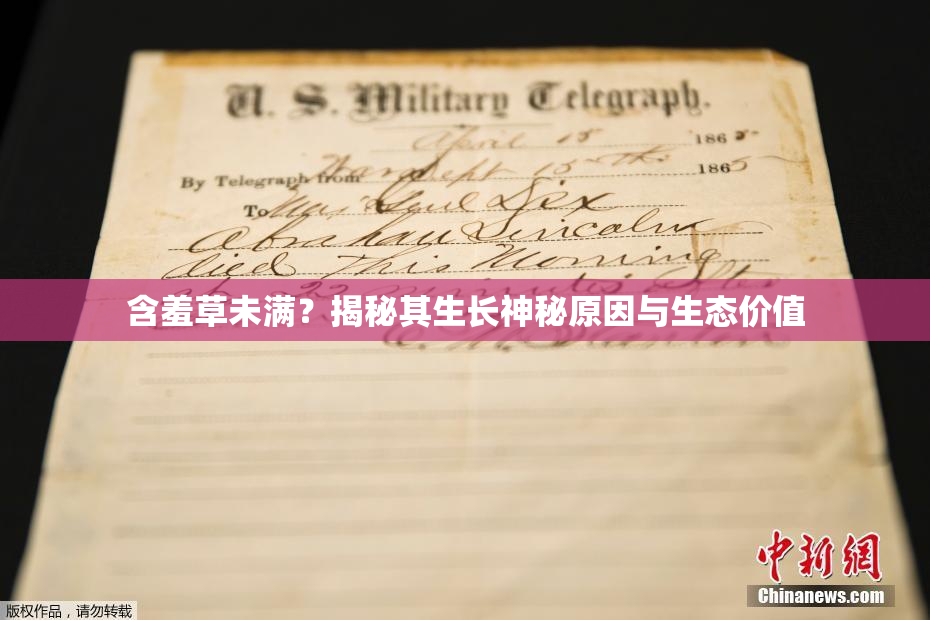 U. S. Military Telegraph.
April 15 1865
By Telegraph from War Dept 15th 1865
To Maj Genl Dix
Abraham Lincoln
died This Morning
at 22 minutes after
含羞草未满？揭秘其生长神秘原因与生态价值
E. M. Stanton
中新网
Chinanews.com
版权作品，请勿转载